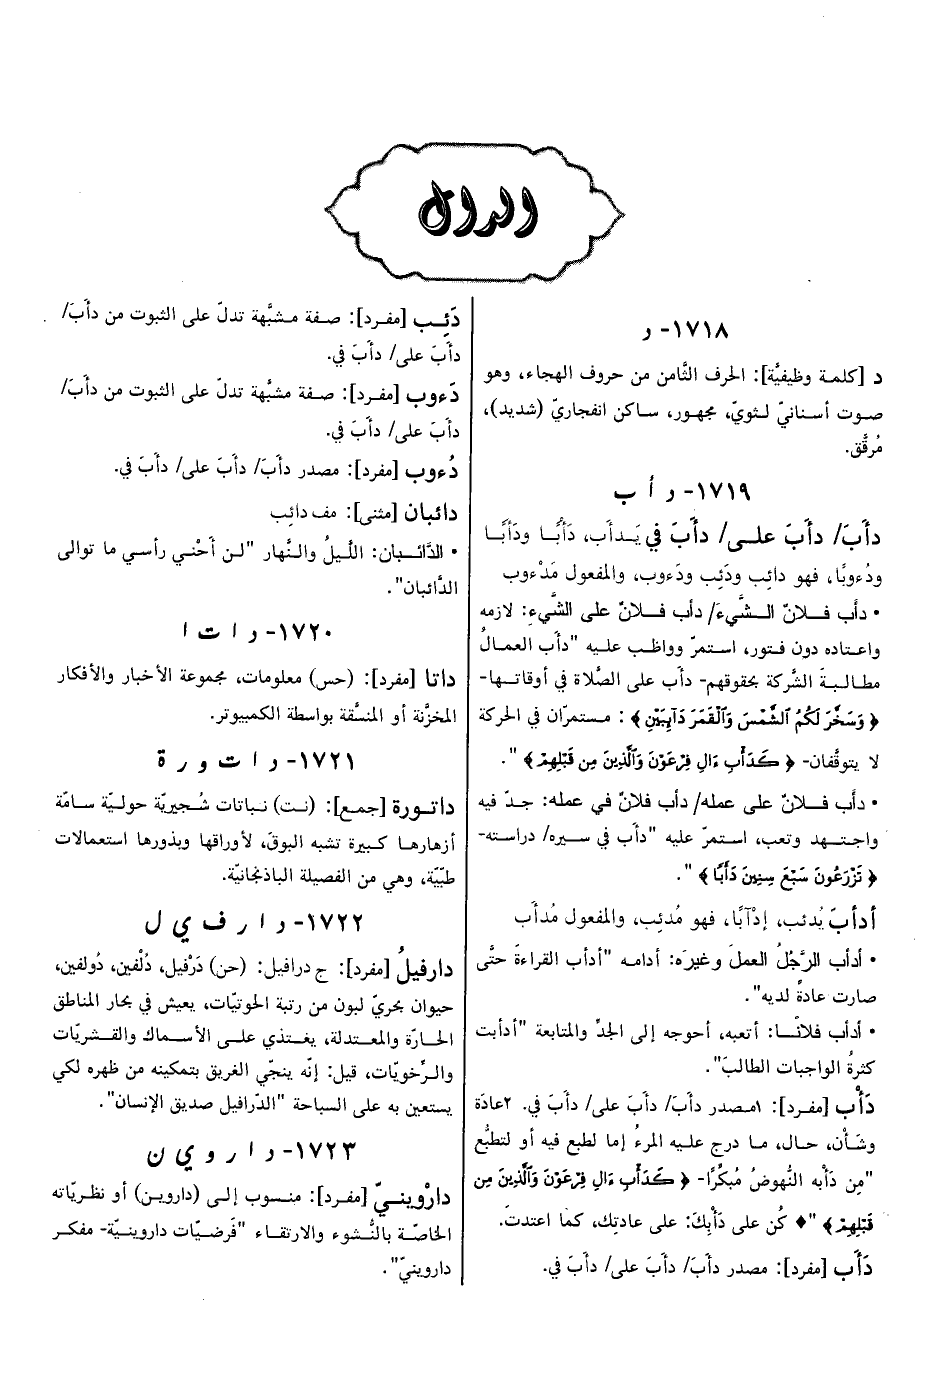 الدال
١٧١٨- د
د [كلمة وظيفيَّة]: الحرف الثَّامن من حروف الهجاء، وهو
صوت أسنانيّ لثويّ، مجهور، ساكن انفجاريّ (شديد)،
مُرقَّق.
١٧١٩- د أ ب
دأَبَ/ دأَبَ علـى/ دأَبَ في يَـدأَب، دَأْبًـا ودَأَبًـا
ودُءوبًا، فهو دائِب ودَئِب ودَءوب، والمفعول مَدْءوب
• دأَب فـلانٌ الـشَّيءَ/ دأب فـلانٌ على الشَّيءِ: لازمه
واعتاده دون فتور، استمرّ وواظب عليه "دأَب العمالُ
مطالبةَ الشّركة بحقوقهم- دأَب على الصَّلاة في أوقاتها-
﴿ وَسَخَّرَ لَكُمُ ٱلشَّمْسَ وَٱلْقَمَرَ دَآئِبَيْنِ ﴾ : مستمرّان في الحركة
لا يتوقَّفان- ﴿ كَدَأْبِ ءَالِ فِرْعَوْنَ وَٱلَّذِينَ مِن قَبْلِهِمْ ﴾ ".
• دأَب فـلانٌ على عمله/ دأب فلانٌ في عمله: جدّ فيه
واجتهد وتعب، استمرّ عليه "دأَب في سيره/ دراسته-
﴿ تَزْرَعُونَ سَبْعَ سِنِينَ دَأَبًا ﴾ ".
أدأبَ يُدئب، إدْآبًا، فهو مُدئِب، والمفعول مُدأَب
• أدأب الرَّجُلُ العملَ وغيرَه: أدامه "أدأب القراءةَ حتَّى
صارت عادةً لديه".
• أدأب فلانًـا: أتعبه، أحوجه إلى الجدِّ والمتابعة "أدأبت
كثرةُ الواجبات الطالبَ".
دَأْب [مفرد]: ١مصدر دأَبَ/ دأَبَ على/ دأَبَ في. ٢عادَة
وشَأْن، حال، ما درج عليه المرءُ إما لطبع فيه أو لتطبُّع
"مِن دَأْبه النُّهوضُ مُبكِّرًا- ﴿ كَدَأْبِ ءَالِ فِرْعَوْنَ وَٱلَّذِينَ مِن
قَبْلِهِمْ ﴾ "♦ كُن على دَأْبِكَ: على عادتِك، كما اعتدتَ.
دَأَب [مفرد]: مصدر دأَبَ/ دأَبَ على/ دأَبَ في.
دَئِـب [مفرد]: صفة مشبَّهة تدلّ على الثبوت من دأَبَ/
دأَبَ على/ دأَبَ في.
دَءوب [مفرد]: صفة مشبَّهة تدلّ على الثبوت من دأَبَ/
دأَبَ على/ دأَبَ في.
دُءوب [مفرد]: مصدر دأَبَ/ دأَبَ على/ دأَبَ في.
دائبان [مثنى]: مف دائِب
• الدَّائـبان: اللَّيلُ والنَّهار "لـن أَحْني رأسي ما توالى
الدَّائبان".
١٧٢٠- د ا ت ا
داتا [مفرد]: (حس) معلومات، مجموعة الأخبار والأفكار
المخزَّنة أو المنسَّقة بواسطة الكمبيوتر.
١٧٢١- د ا ت و ر ة
داتـورة [جمع]: (نـت) نـباتات شُجيريَّة حوليَّة سامَّة
أزهارهـا كبيرة تشبه البوق، لأوراقها وبذورها استعمالات
طبّيّة، وهي من الفصيلة الباذنجانيّة.
١٧٢٢- د ا ر ف ي ل
دارفيلُ [مفرد]: ج درافيل: (حن) دَرْفيل، دُلْفين، دُولفين،
حيوان بحريّ لبون من رتبة الحوتيّات، يعيش في بحار المناطق
الحـارّة والمعـتدلة، يغـتذي علـى الأسـماك والقـشريّات
والـرِّخويّات، قيل: إنّه ينجّي الغريق بتمكينه من ظهره لكي
يستعين به على السباحة "الدَّرافيل صديق الإنسان".
١٧٢٣- د ا ر و ي ن
دارْوينـيّ [مفرد]: منسوب إلى (داروين) أو نظريّاته
الخاصَّة بالنُّشوء والارتقاء "فَرضيّات داروينيّة- مفكر
داروينيّ".